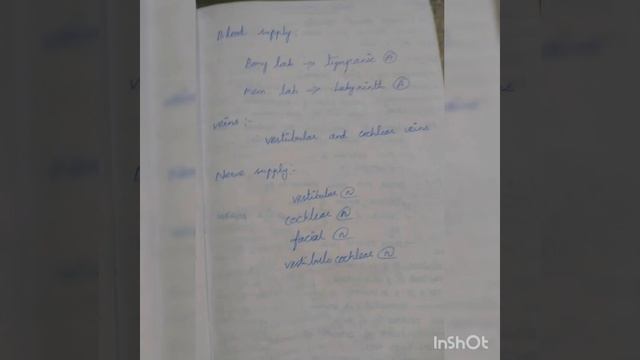 Blood supply:
Bony lab → tympanic Ⓐ
Mem lab → Labyrinth Ⓐ
veins:-
vestibular and cochlear veins
Nerve supply:-
vestibular ⓝ
cochlear ⓝ
facial ⓝ
vestibulo cochlear ⓝ
InShOt